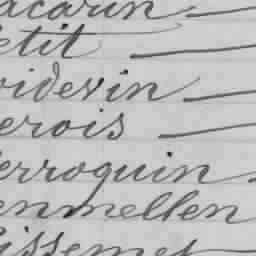 acarin
etit
oidevin
erois
erroquin
enmellen
issemet